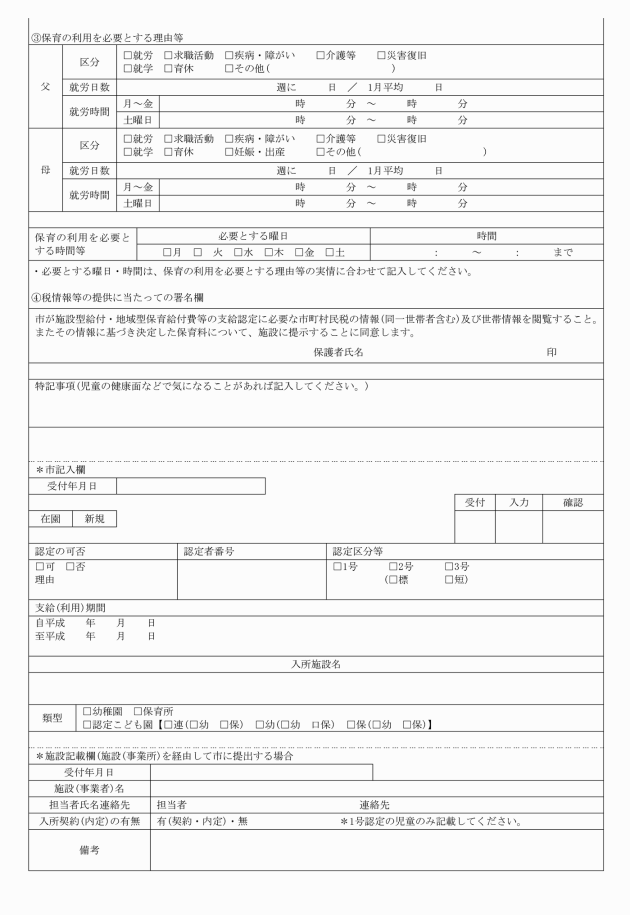 ③保育の利用を必要とする理由等
父
区分
□就労 □求職活動 □疾病・障がい □介護等 □災害復旧
□就学 □育休 □その他( )
就労日数
週に 日 ／ 1月平均 日
就労時間
月～金
時 分 ～ 時 分
土曜日
時 分 ～ 時 分
母
区分
□就労 □求職活動 □疾病・障がい □介護等 □災害復旧
□就学 □育休 □妊娠・出産 □その他( )
就労日数
週に 日 ／ 1月平均 日
就労時間
月～金
時 分 ～ 時 分
土曜日
時 分 ～ 時 分
保育の利用を必要と
する時間等
必要とする曜日
時間
□月 □ 火 □水 □木 □金 □土
： ～ ： まで
・必要とする曜日・時間は、保育の利用を必要とする理由等の実情に合わせて記入してください。
④税情報等の提供に当たっての署名欄
市が施設型給付・地域型保育給付費等の支給認定に必要な市町村民税の情報(同一世帯者含む)及び世帯情報を閲覧すること。
またその情報に基づき決定した保育料について、施設に提示することに同意します。
保護者氏名 印
特記事項(児童の健康面などで気になることがあれば記入してください。)
＊市記入欄
受付年月日
受付 入力 確認
在園 新規
認定の可否
認定者番号
認定区分等
□可 □否
理由
□1号 □2号 □3号
(□標 □短)
支給(利用)期間
自平成 年 月 日
至平成 年 月 日
入所施設名
類型
□幼稚園 □保育所
□認定こども園【□連(□幼 □保) □幼(□幼 ロ保) □保(□幼 □保)】
＊施設記載欄(施設(事業所)を経由して市に提出する場合
受付年月日
施設(事業者)名
担当者氏名連絡先
担当者 連絡先
入所契約(内定)の有無
有(契約・内定)・無 ＊1号認定の児童のみ記載してください。
備考